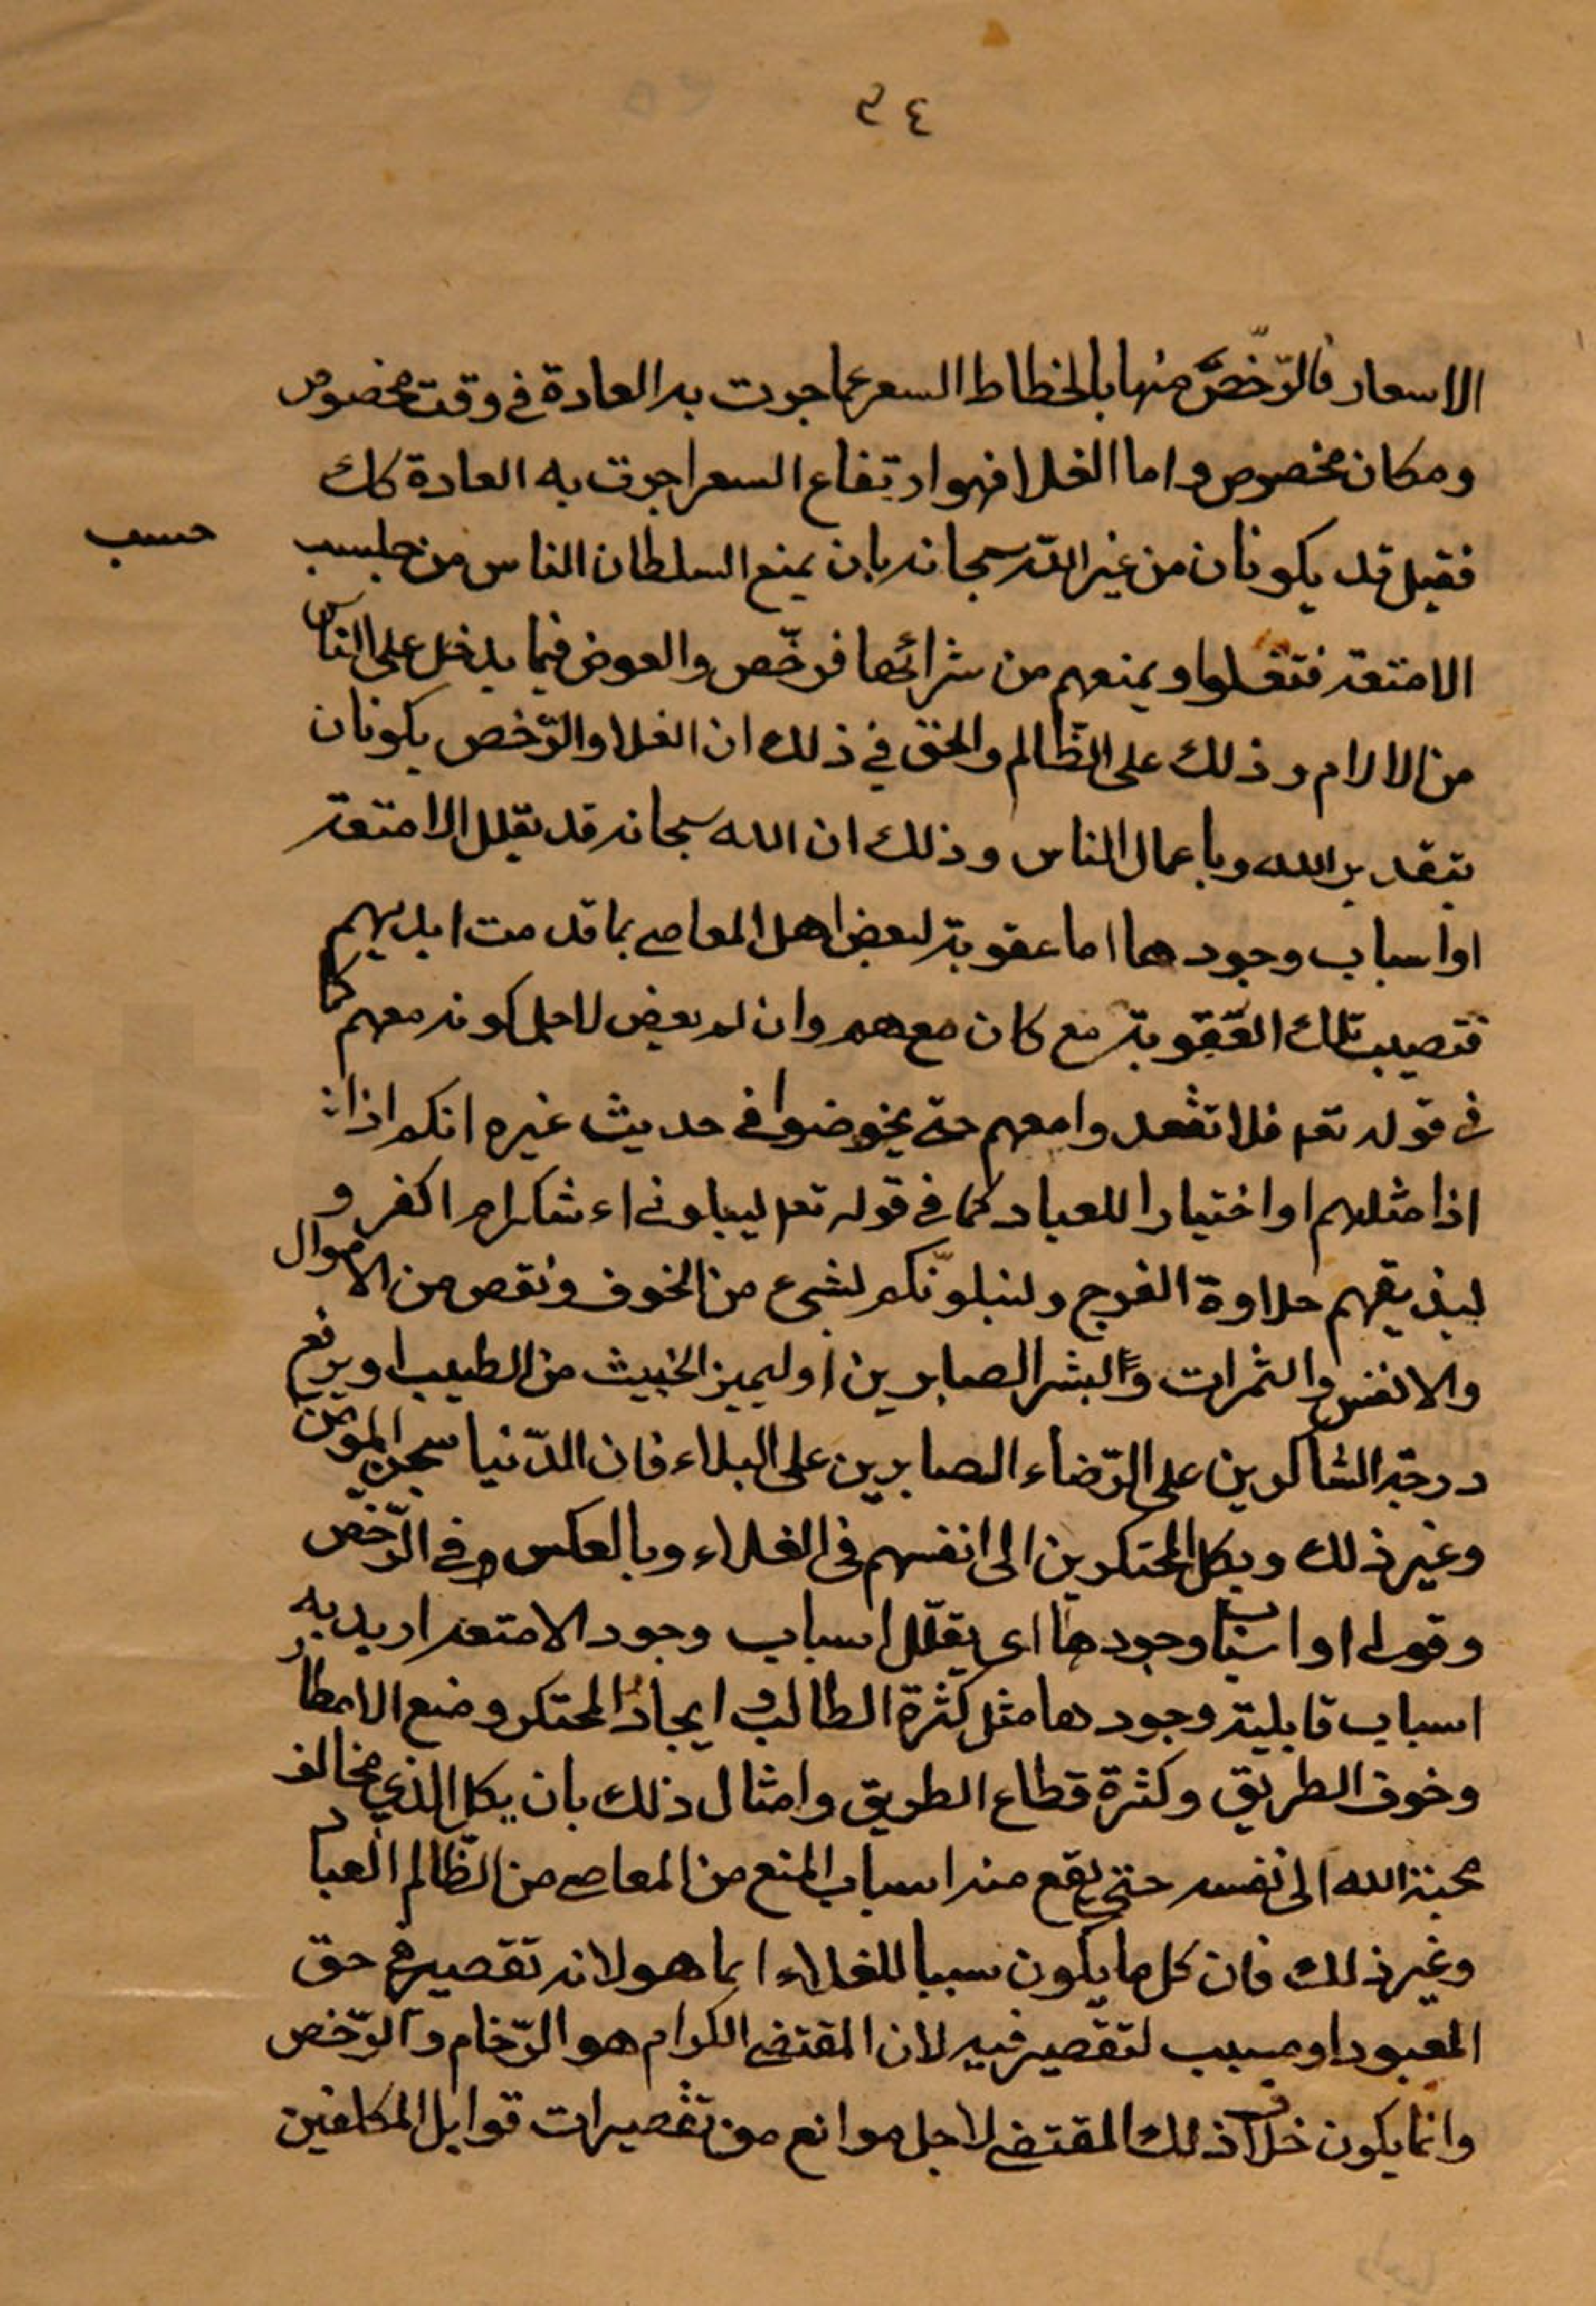 ٣٤
الاسعار فالرّخص منها بالخطاط السعر عما جرت به العادة في وقت مخصوص
ومكان مخصوص واما الغلا فهو ارتفاع السعر اجرت به العادة كك
فقيل قد يكونان من غير الله سبحانه بان يمنع السلطان الناس من جلبسب
حسب
الامتعة فتغلوا ويمنعهم من شرائها فرخّص والعوض فيما يدخل على الناس
من الالام وذلك على الظّالم والحق في ذلك ان الغلا والرّخص يكونان
بتقدير الله وباعمال الناس وذلك ان الله سبحانه قد يقلل الامتعة
او اسباب وجودها اما عقوبة لبعض اهل المعاصي بما قدمت ايديهم
فتصيب تلك العقوبة مع كان معهم وان لم يعض لاجل كونه معهم كما
في قوله تعم فلا تقعدوا معهم حتى يخوضوا في حديث غيره انكم اذا
اذا مثلهم او اختيارا للعباد كما في قوله تعم ليبلوني اء شكر ام اكفر و
ليذيقهم حلاوة الفرج ولنبلونّكم بشيء من الخوف ونقص من الاموال
والانفس والثمرات والبشر الصابرين او ليميز الخبيث من الطيب او يرفع
درجة الشاكرين على الرّضاء الصابرين على البلاء فان الدّنيا سجن المؤمن
وغير ذلك ويكل المحتكرين الى انفسهم في الغلاء وبالعكس وفي الرّخص
وقولى او اسباب وجودها اى يقلّل اسباب وجود الامتعة اريد به
اسباب قابلية وجودها مثل كثرة الطالب و ايجاد المحتكر ومنع الامطار
وخوف الطريق وكثرة قطاع الطريق وامثال ذلك بان يكل الذي مخالف
محبة الله الى نفسه حتى يقع منه اسباب المنع من المعاصي من الظّالم العباد
وغير ذلك فان كل ما يكون سببا للغلاء انما هو لانه تقصير في حق
المعبود او مسبب لتقصير فيه لان المقتضى الكرام هو الرّخام والرّخص
وانما يكون خلاف ذلك المقتضى لاجل موانع من تقصيرات قوابل المكلفين